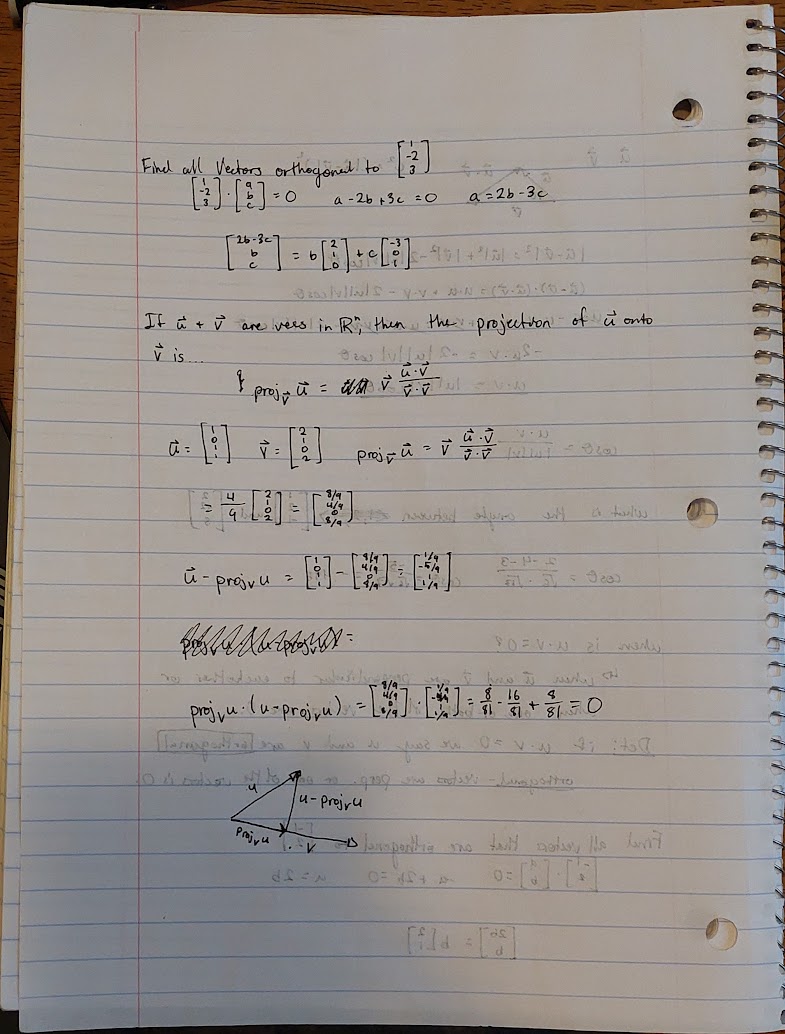 Find all vectors orthogonal to [1 -2 3]
[1 -2 3] · [a b c] = 0   a - 2b + 3c = 0   a = 2b - 3c
[2b-3c b c] = b[2 1 0] + c[-3 0 1]
If u⃗ + v⃗ are vecs in ℝⁿ, then the projection of u⃗ onto
v⃗ is...
proj_v⃗ u⃗ = v⃗ (u⃗·v⃗)/(v⃗·v⃗)
u⃗ = [1 0 1 1]   v⃗ = [2 1 0 2]   proj_v⃗ u⃗ = v⃗ (u⃗·v⃗)/(v⃗·v⃗)
= 4/9 [2 1 0 2] = [8/9 4/9 0 8/9]
u⃗ - proj_v u = [1 0 1 1] - [8/9 4/9 0 8/9] = [1/9 -4/9 1 1/9]
proj_v u · (u - proj_v u) = [8/9 4/9 0 8/9] · [1/9 -4/9 1 1/9] = 8/81 - 16/81 + 8/81 = 0
u
u - proj_v u
proj_v u
v